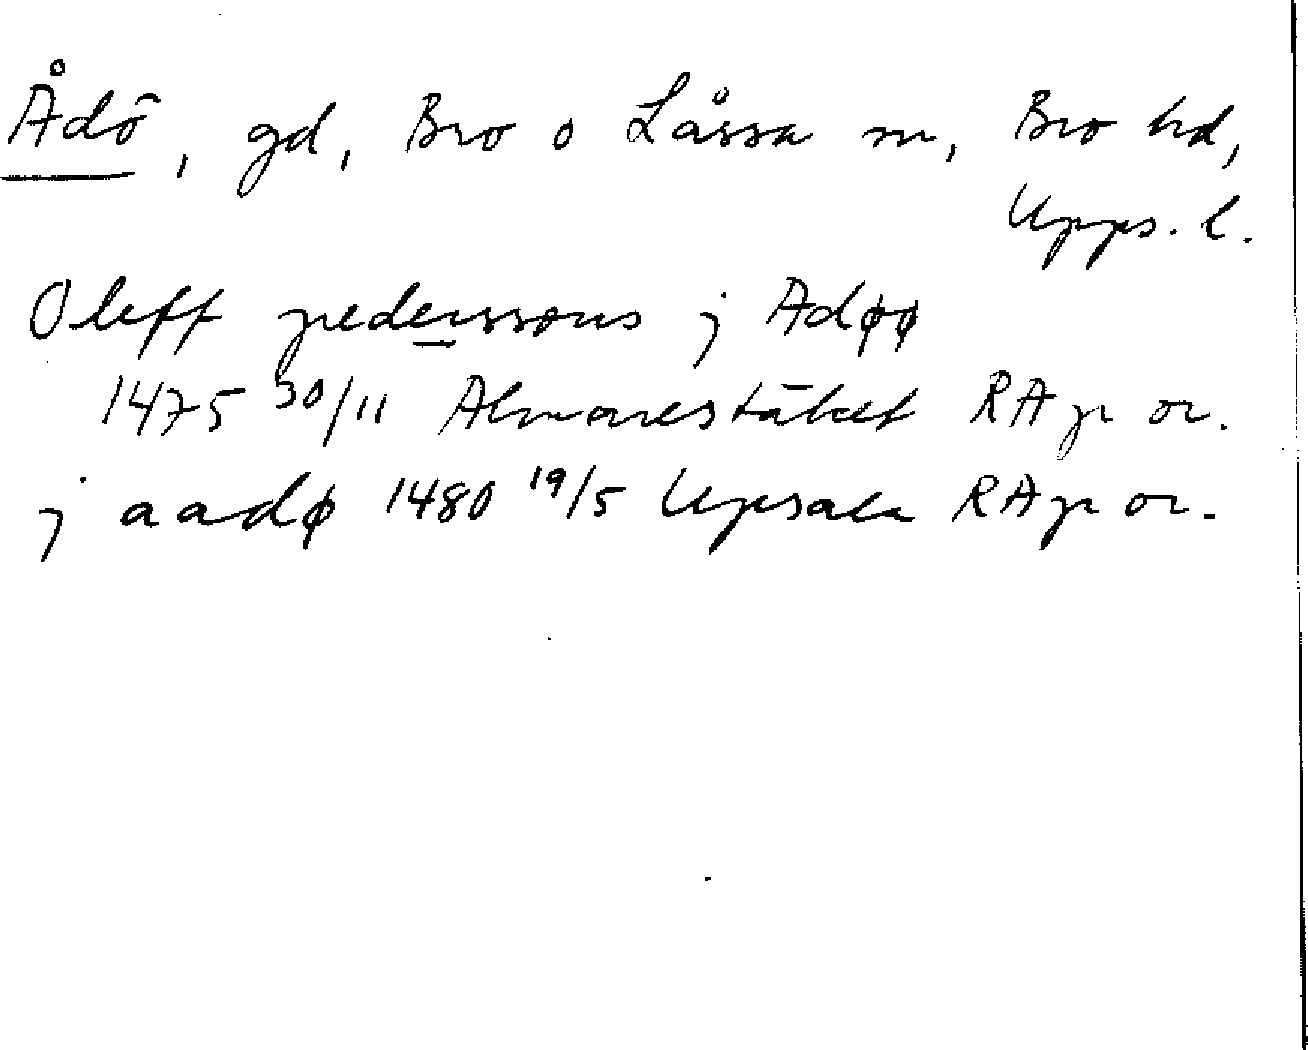 Ådö, gd, Bro o Låssa sn, Bro hd,
Upps. l.
Oleff pederssons j Adøø
1475 30/11 Almarestäket RA p or.
j aadø 1480 19/5 Upsala RA p or.